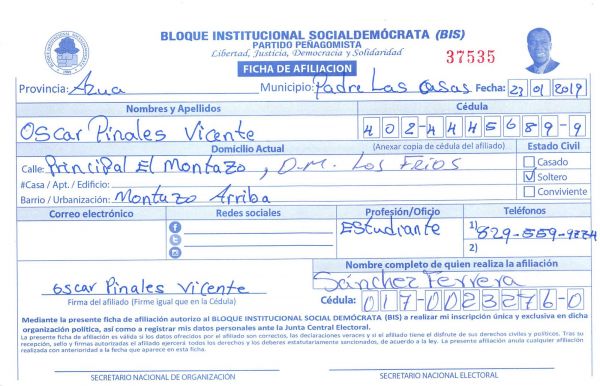 BLOQUE INSTITUCIONAL SOCIALDEMÓCRATA (BIS)
PARTIDO PEÑAGOMISTA
Libertad, Justicia, Democracia y Solidaridad
37535
FICHA DE AFILIACION
Provincia: Azua Municipio: Padre Las Casas Fecha: 23 01 2019
Nombres y Apellidos Cédula
Oscar Pinales Vicente 402-4445689-9
Domicilio Actual (Anexar copia de cédula del afiliado) Estado Civil
Calle: Principal El Montazo, D.M. Los Frios Casado
#Casa / Apt. / Edificio: Soltero
Barrio / Urbanización: Montazo Arriba Conviviente
Correo electrónico Redes sociales Profesión/Oficio Teléfonos
Estudiante 1) 829-559-
2)
Nombre completo de quien realiza la afiliación
oscar Pinales Vicente Sánchez Ferrera
Firma del afiliado (Firme igual que en la Cédula) Cédula: 017-0023276-0
Mediante la presente ficha de afiliación autorizo al BLOQUE INSTITUCIONAL SOCIAL DEMÓCRATA (BIS) a realizar mi inscripción única y exclusiva en dicha
organización política, así como a registrar mis datos personales ante la Junta Central Electoral.
La presente ficha de afiliación es válida si los datos ofrecidos por el afiliado son correctos, las declaraciones veraces y si el afiliado tiene el disfrute de sus derechos civiles y políticos. Tras su
recepción, sello y firmas autorizadas el afiliado ejercerá todos los derechos y los deberes estatutariamente sancionados, de acuerdo a la ley. La presente afiliación anula cualquier afiliación
realizada con anterioridad a la fecha que aparece en esta ficha.
SECRETARIO NACIONAL DE ORGANIZACIÓN SECRETARIO NACIONAL ELECTORAL